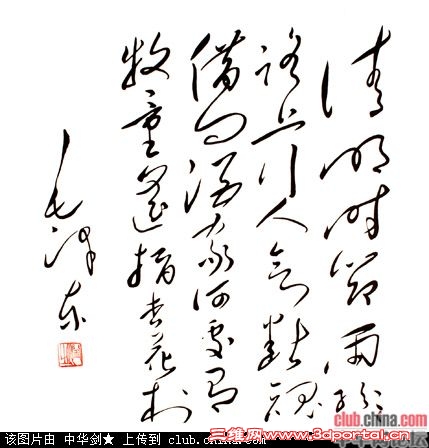 清明时节雨纷纷
路上行人欲断魂
借问酒家何处有
牧童遥指杏花村
毛泽东
club.china.com
三维网www.3dportal.cn
该图片由 中华剑★ 上传到 club.china.com